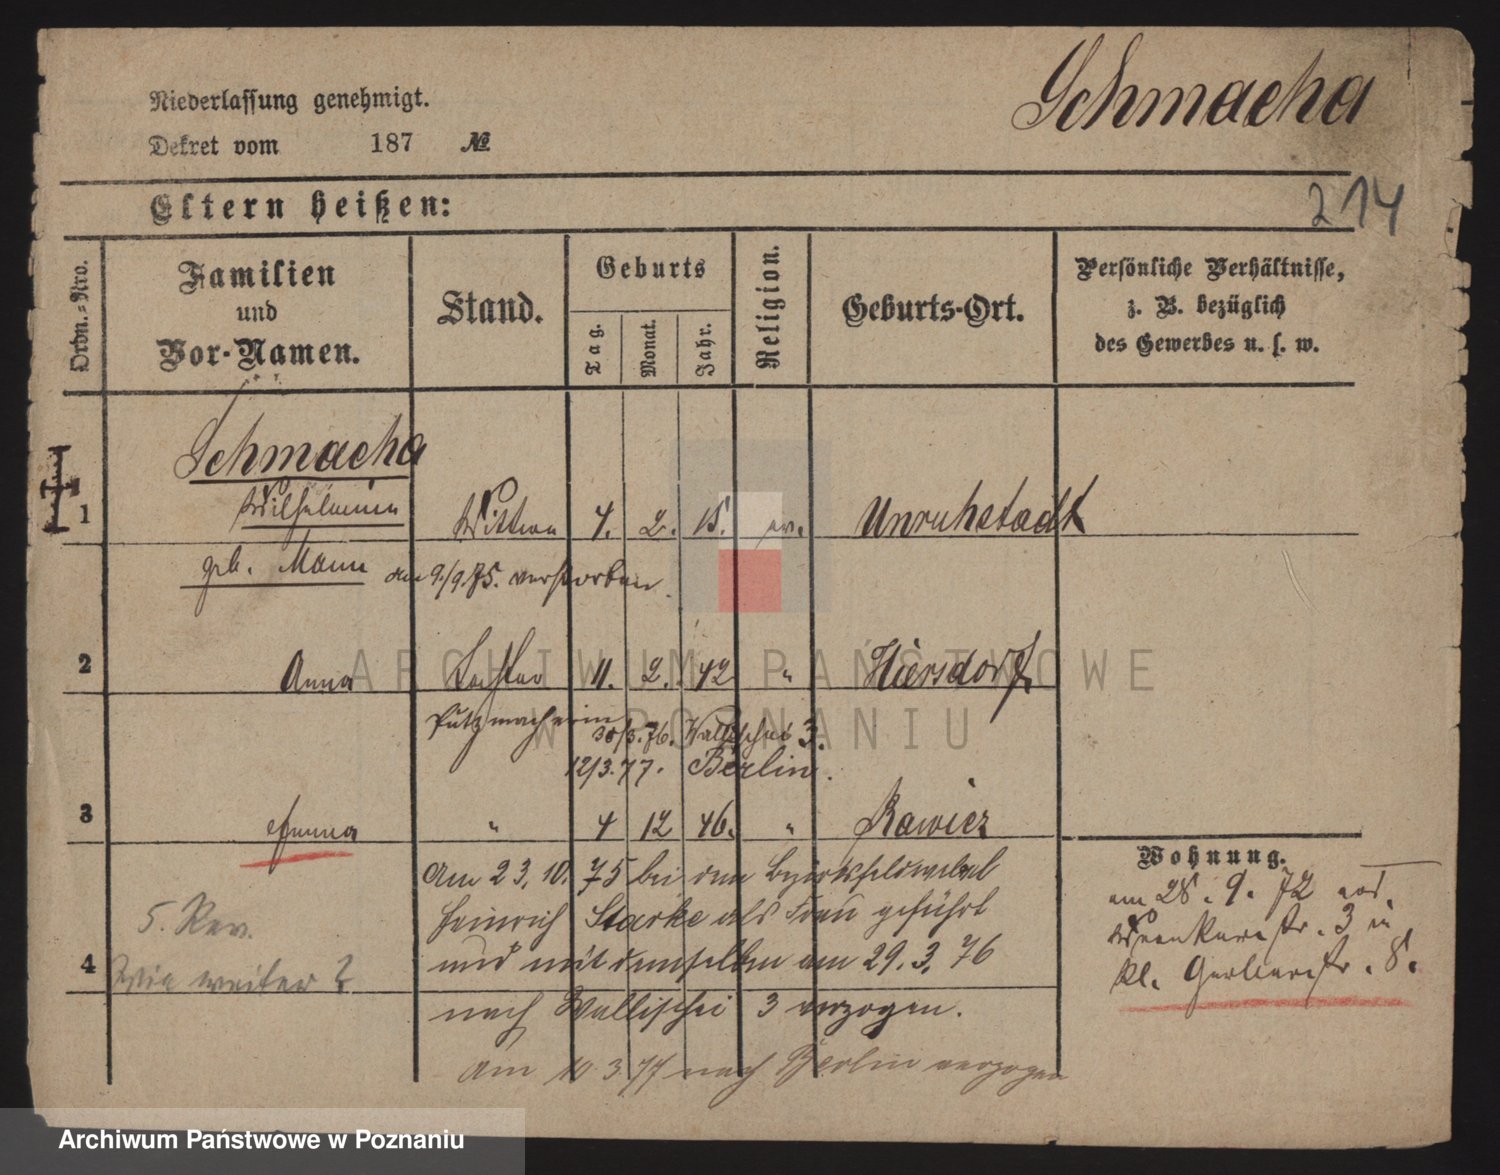 Schmacha
Niederlassung genehmigt.
Dekret vom 187 №
214
Eltern heißen:
Ordn.-Nro.
Familien
und
Vor-Namen.
Stand.
Geburts
Tag.
Monat.
Jahr.
Religion.
Geburts-Ort.
Persönliche Verhältnisse,
z. B. bezüglich
des Gewerbes u. s. w.
Schmacha
1 Wilhelmine Wittwe 4. 2. 15. ev. Unruhstadt
geb. Mann den 9./9.75. verstorben.
2 Anna Tochter 11. 2. 42 " Hiersdorf
Putzmacherin
30/3.76. Wallischei 3.
12/3.77. Berlin.
3 Emma " 4 12 46. " Rawicz
Am 23.10.75 bei dem Bezirksfeldwebel
Heinrich Starke als Frau geführt
und mit demselben am 29.3.76
nach Wallischei 3 verzogen.
Am 10.3.77 nach Berlin verzogen
5. Rev.
4 Wie weiter?
Wohnung.
am 28.9.72 von
3 in
kl. Gerberstr. 8.
ARCHIWUM PAŃSTWOWE
W POZNANIU
Archiwum Państwowe w Poznaniu